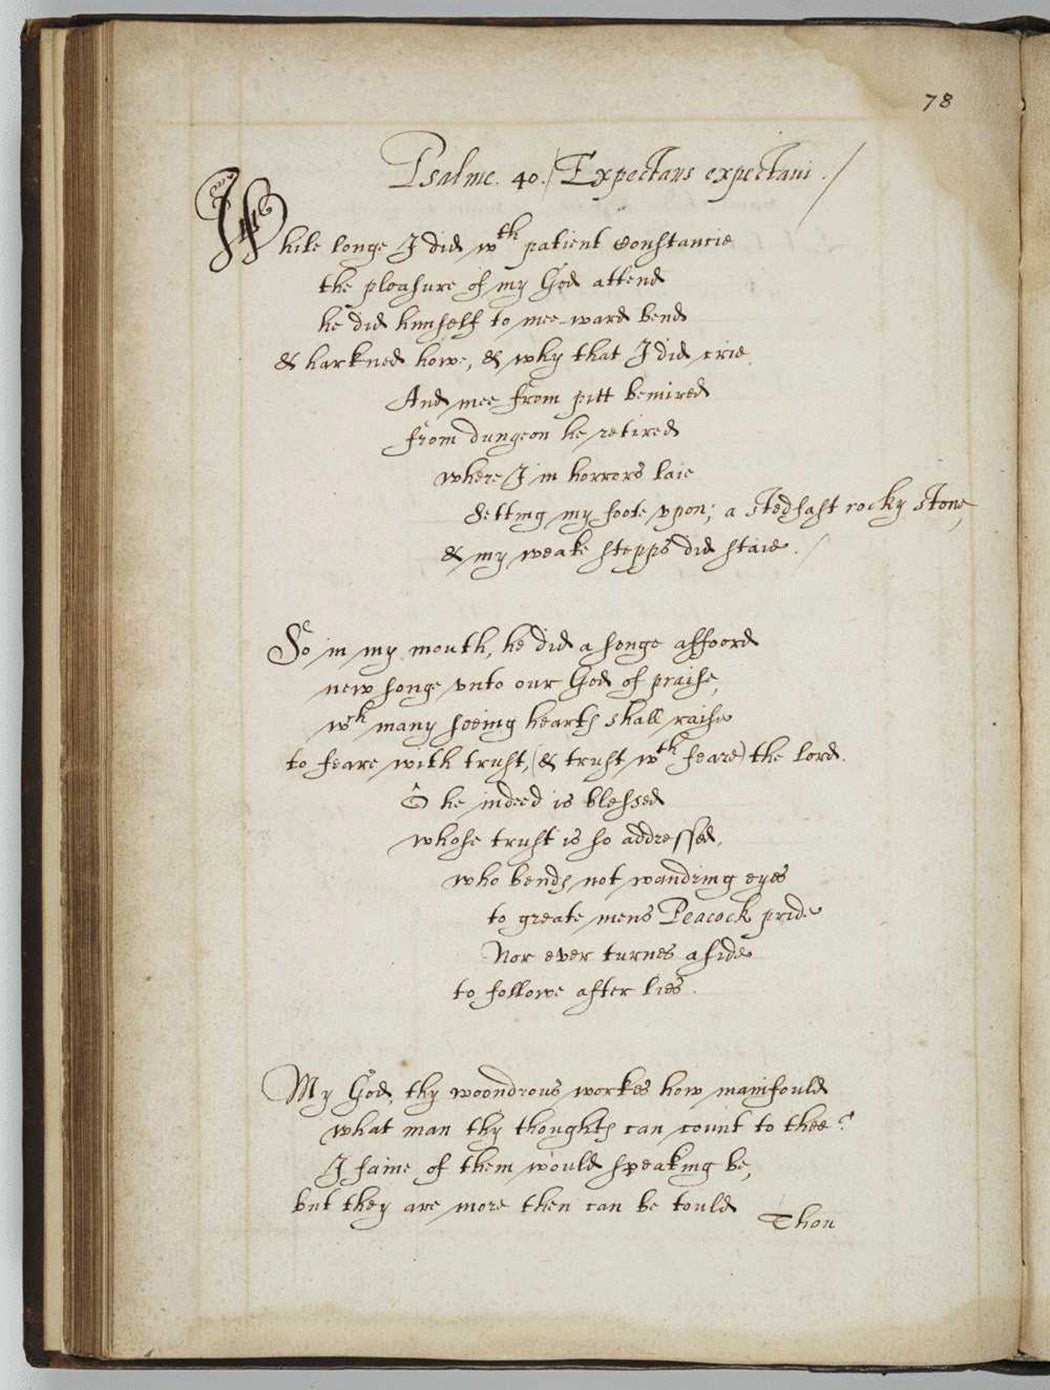 78
Psalme. 40. Expectans expectaui ./
While longe I did wth patient Constancie
the pleasure of my God attend
he did himself to mee-ward bend
& harkned howe, & why that I did crie.
And mee from pitt bemired
from dungeon he retired
where I in horrors laie
Setting my foote vpon; a stedfast rocky stone,
& my weake stepps did staie ./
So in my mouth, he did a songe affoord
new songe vnto our God of praise,
wch many seeing hearts shall raise
to feare with trust, (& trust wth feare) the lord.
O he indeed is blessed
whose trust is so addressed,
who bends not wandring eyes
to greate mens Peacock pride
Nor ever turnes aside
to followe after lies.
My God, thy woondrous workes how manifould
what man thy thoughts can count to thee?
I faine of them would speaking be,
but they are more then can be tould
Thou